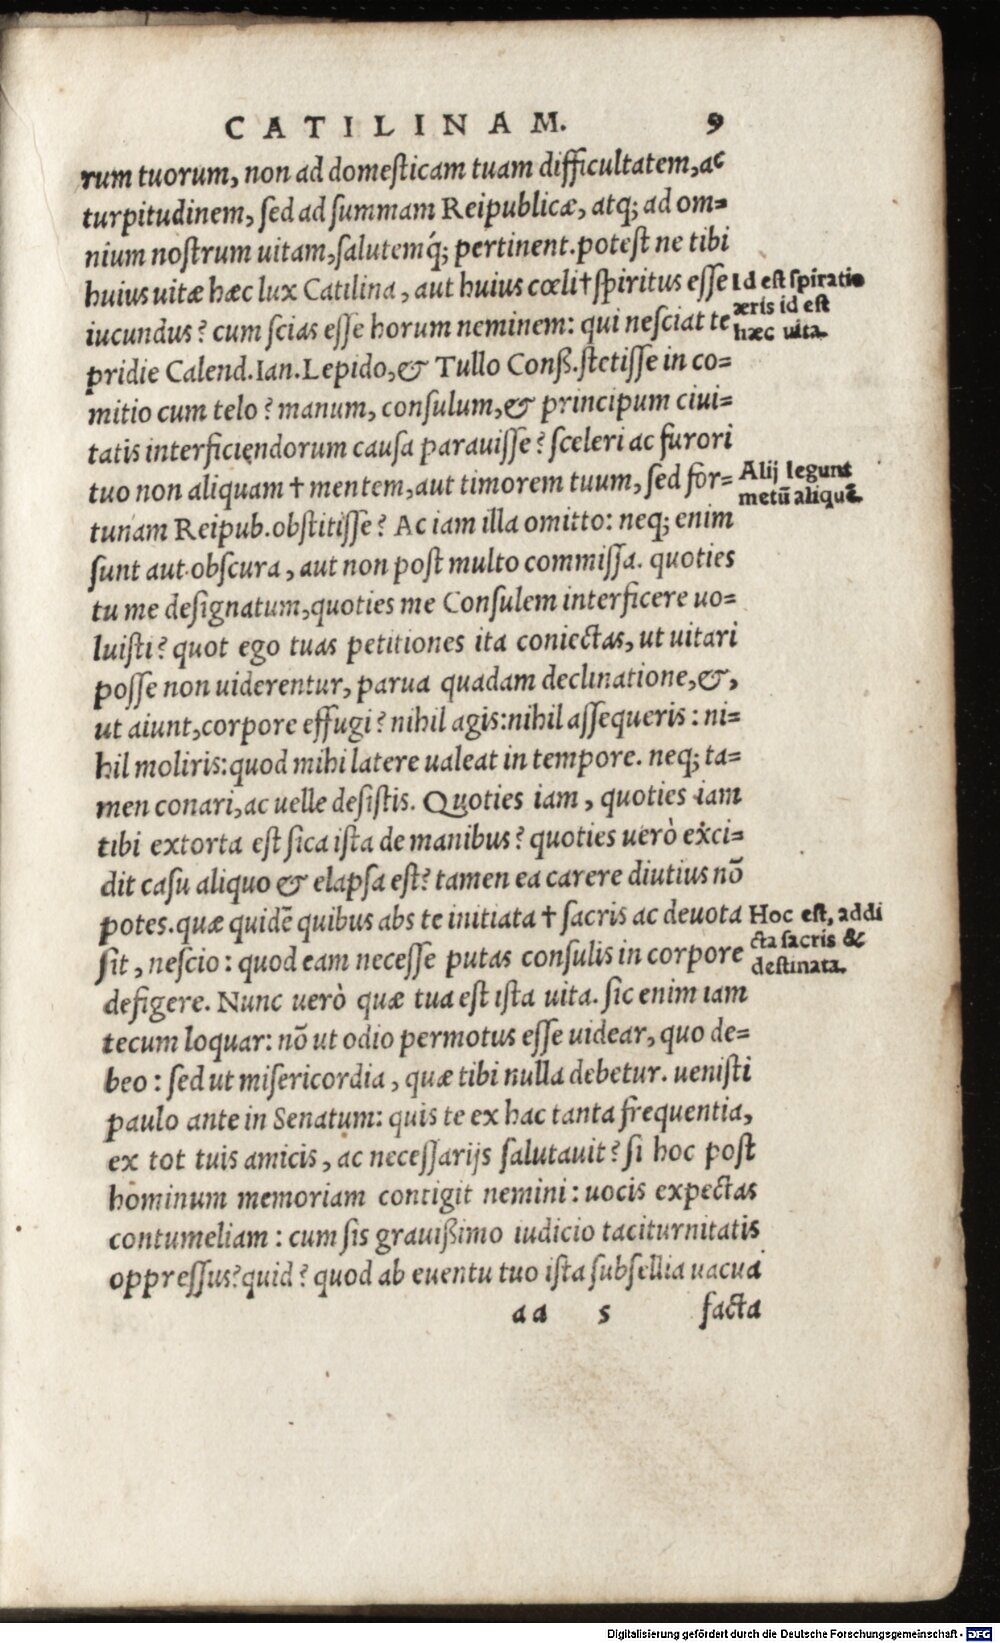 CATILINAM. 9
rum tuorum, non ad domesticam tuam difficultatem, ac
turpitudinem, sed ad summam Reipublicæ, atq; ad om=
nium nostrum uitam, salutemq́; pertinent. potest ne tibi
huius uitæ hæc lux Catilina, aut huius cœli † spiritus esse
Id est spiratio
æris id est
hæc uita.
iucundus? cum scias esse horum neminem: qui nesciat te
pridie Calend. Ian. Lepido, & Tullo Conß. stetisse in co=
mitio cum telo? manum, consulum, & principum ciui=
tatis interficiendorum causa parauisse? sceleri ac furori
tuo non aliquam † mentem, aut timorem tuum, sed for=
Alij legunt
metū aliquē.
tunam Reipub. obstitisse? Ac iam illa omitto: neq; enim
sunt aut obscura, aut non post multo commissa. quoties
tu me designatum, quoties me Consulem interficere uo=
luisti? quot ego tuas petitiones ita coniectas, ut uitari
posse non uiderentur, parua quadam declinatione, &,
ut aiunt, corpore effugi? nihil agis: nihil assequeris: ni=
hil moliris: quod mihi latere ualeat in tempore. neq; ta=
men conari, ac uelle desistis. Quoties iam, quoties iam
tibi extorta est sica ista de manibus? quoties uerò exci=
dit casu aliquo & elapsa est? tamen ea carere diutius nō
potes. quæ quidē quibus abs te initiata † sacris ac deuota
Hoc est, addi
cta sacris &
destinata.
sit, nescio: quod eam necesse putas consulis in corpore
defigere. Nunc uerò quæ tua est ista uita. sic enim iam
tecum loquar: nō ut odio permotus esse uidear, quo de=
beo: sed ut misericordia, quæ tibi nulla debetur. uenisti
paulo ante in Senatum: quis te ex hac tanta frequentia,
ex tot tuis amicis, ac necessarijs salutauit? si hoc post
hominum memoriam contigit nemini: uocis expectas
contumeliam: cum sis grauißimo iudicio taciturnitatis
oppressus? quid? quod ab euentu tuo ista subsellia uacua
aa 5 facta
Digitalisierung gefördert durch die Deutsche Forschungsgemeinschaft - DFG